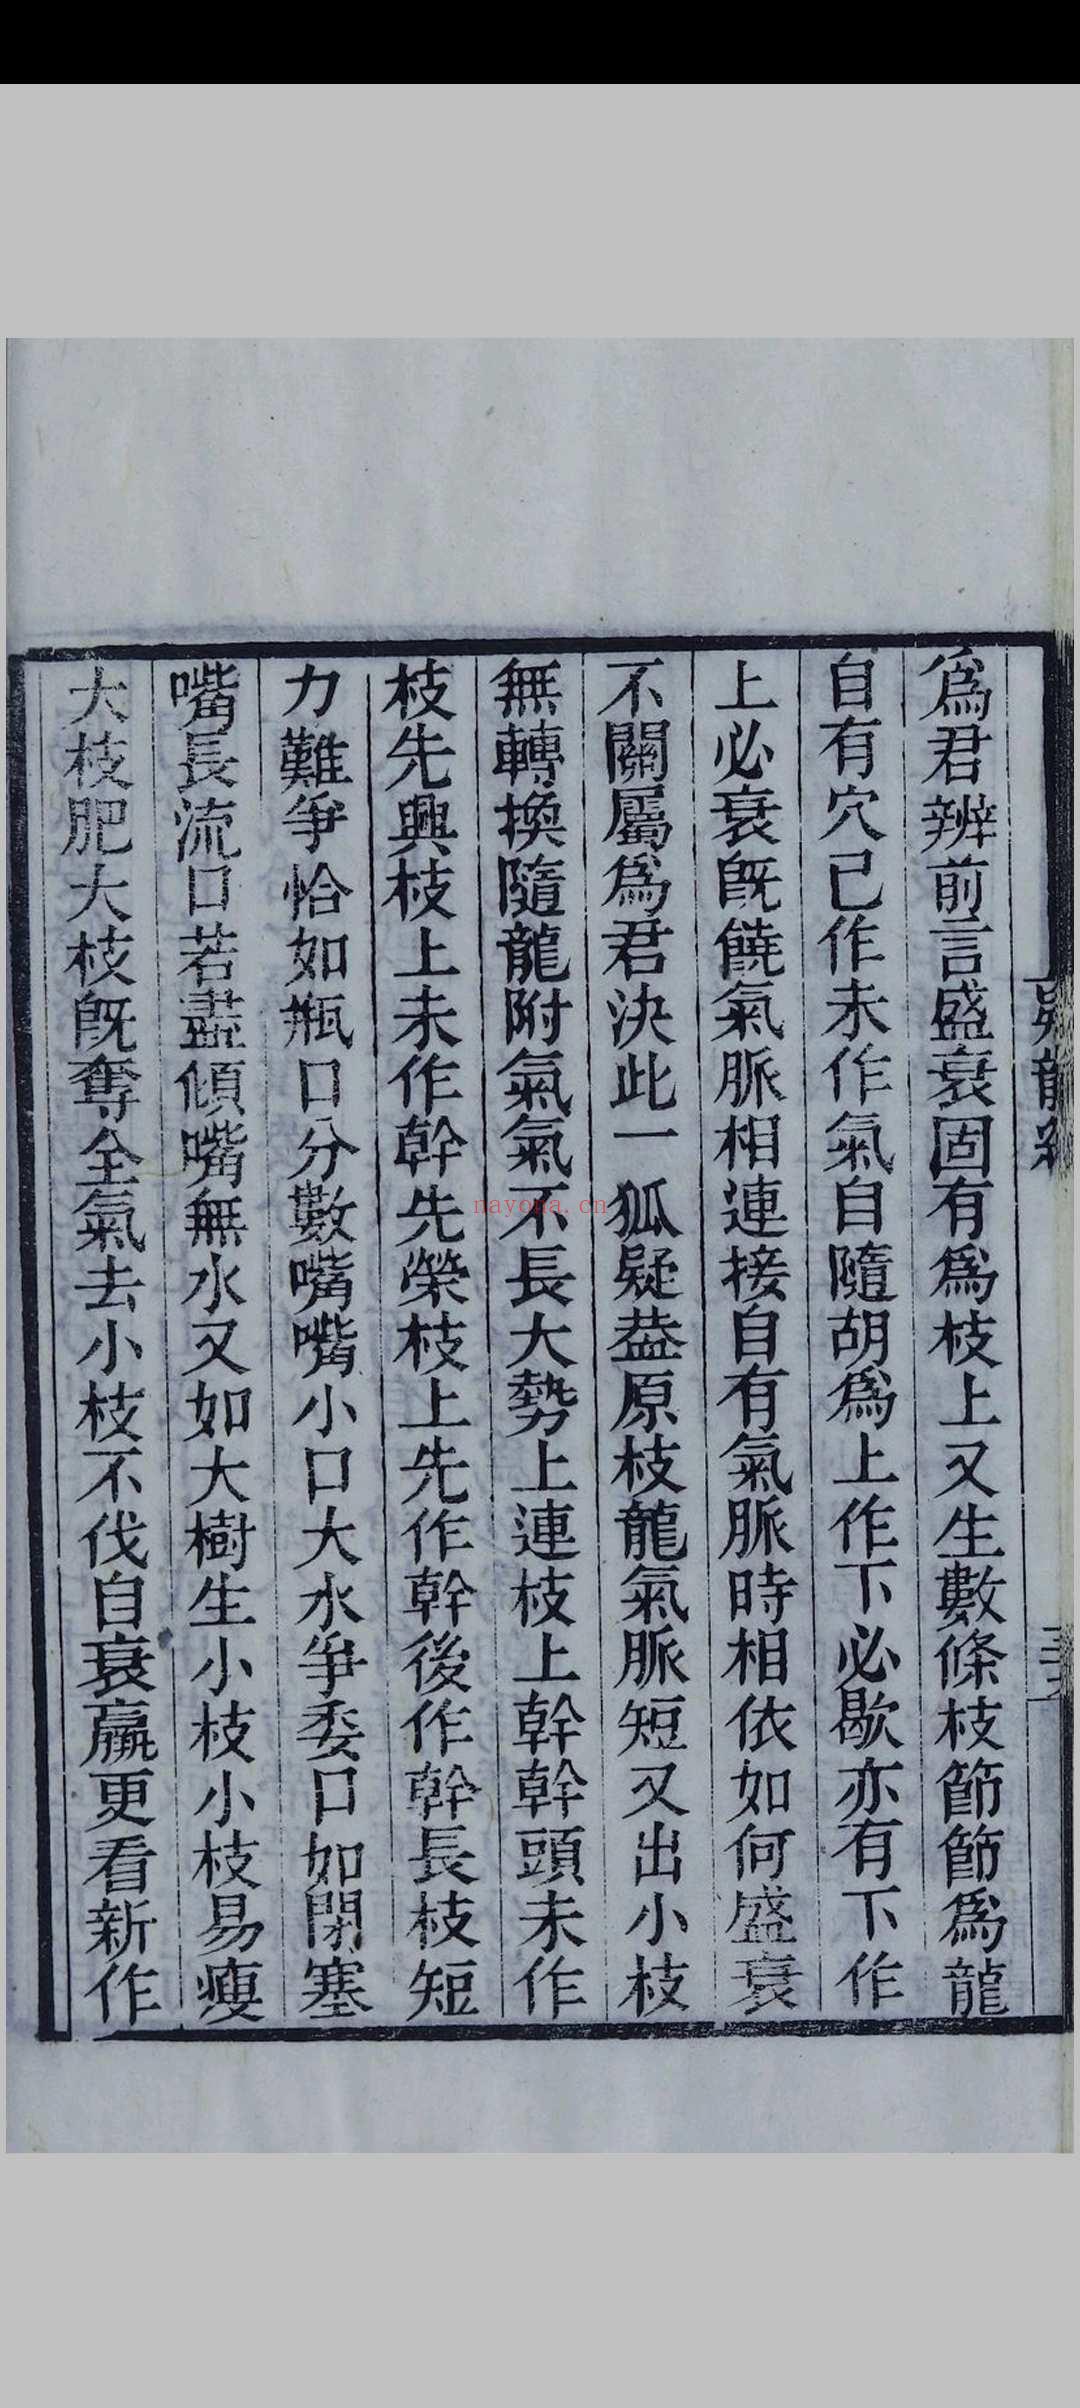 爲君辨前言盛衰固有爲枝上又生數條枝節節爲龍
自有穴已作未作氣自隨胡爲上作下必歇亦有下作
上必衰旣饒氣脈相連接自有氣脈時相依如何盛衰
不關屬爲君決此一狐疑葢原枝龍氣脈短又出小枝
無轉換隨龍附氣氣不長大勢上連枝上幹幹頭未作
枝先興枝上未作幹先榮枝上先作幹後作幹長枝短
力難爭恰如瓶口分數嘴嘴小口大水爭委口如閉塞
嘴長流口若盡傾嘴無水又如大樹生小枝小枝易瘦
大枝肥大枝旣奪全氣去小枝不伐自衰羸更看新作
nayona.cn